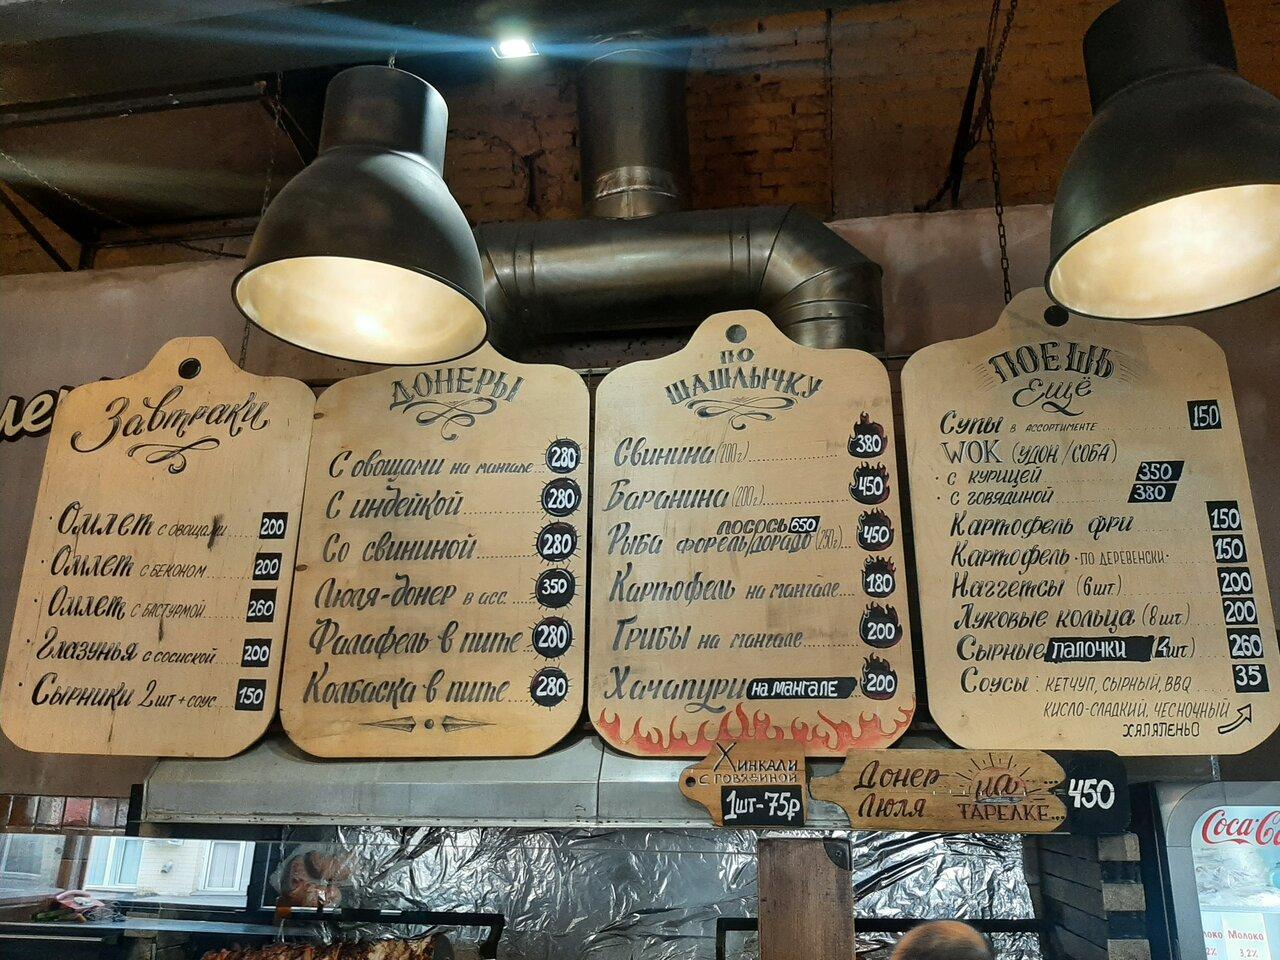 Завтраки
Омлет с овощами 200
Омлет с беконом 200
Омлет с бастурмой 260
Глазунья с сосиской 200
Сырники 2шт + соус 150
ДОНЕРЫ
С овощами на мангале 280
С индейкой 280
Со свининой 280
Люля-донер в асс. 350
Фалафель в пите 280
Колбаска в пите 280
ПО
ШАШЛЫЧКУ
Свинина (200г) 380
Баранина (200г) 450
лосось 650
Рыба форель/дорадо (250г) 450
Картофель на мангале 180
Грибы на мангале 200
Хачапури на мангале 200
ПОЕШЬ
Ещё
Супы в ассортименте 150
WOK (УДОН/СОБА)
с курицей 350
с говядиной 380
Картофель фри 150
Картофель ·по деревенски· 150
Наггетсы (6 шт) 200
Луковые кольца (8 шт.) 200
Сырные палочки (4шт.) 260
Соусы: кетчуп, сырный, BBQ 35
кисло-сладкий, чесночный
халапеньо
Хинкали
с говядиной
1шт-75р
Донер на
Люля ТАРЕЛКЕ... 450
Coca-C
Молоко
3,2%